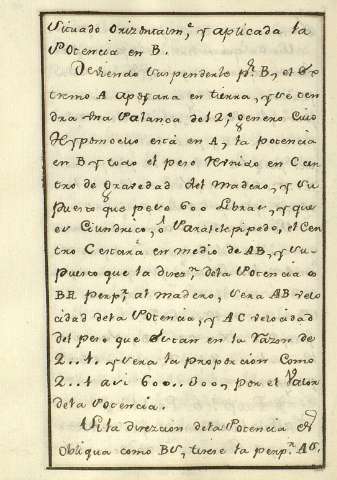 Situado Orizontalm.e y aplicada la
Potencia en B.
Deviendo suspenderse p.r B, el ex
tremo A apoyara en tierra, y se ten
dra una Palanca del 2.o genero cuio
Hypomoclio está en A, la potencia
en B y todo el peso reunido en C cen
tro de gravedad del madero, y su
puesto que peso 600 libras, y que
es Cilindrico, ó Paralelepipedo, el cen
tro C estará en medio de AB, y su-
puesto que la direz.n dela Potencia es
BR perp.r al madero, sera AB velo
cidad dela Potencia, y AC velocidad
del peso que estan en la razon de
2..1. y sera la proporcion como
2..1 asi 600..300, por el valor
dela Potencia.
Si la direzcion dela Potencia es
obliqua como BS, tirese la perp.r AG.